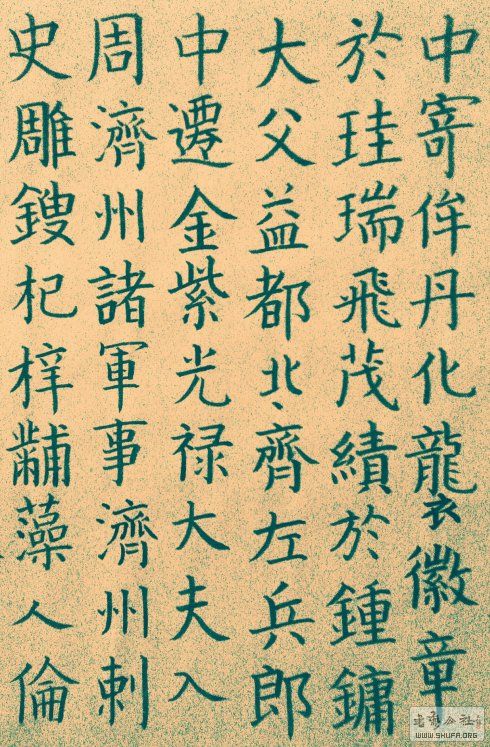 中寄侔丹化襲徽章
於珪瑞飛茂績於鍾鏞
大父益都北、齊左兵郎
中遷金紫光禄大夫入
周濟州諸軍事濟州刺
史雕鎪杞梓黼藻人倫
WWW.SHUFA.ORG